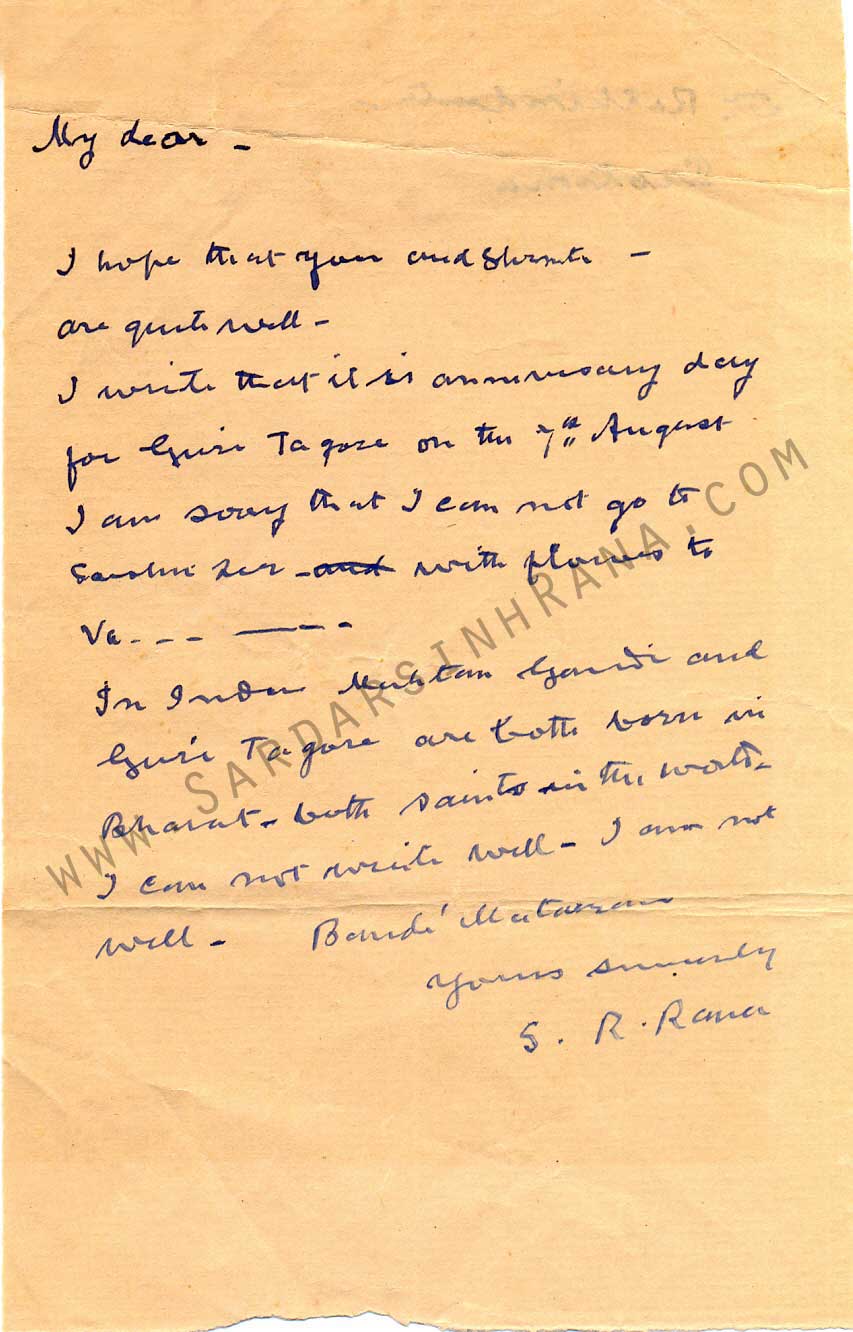 My dear -
I hope that you and Shrimti -
are quite well -
I write that it is anniversary day
for Guru Tagore on the 7th August
I am sorry that I can not go to
and with flowers to
Va - - - ——— - -
In India Mahtam Gandi and
Guru Tagore are both born in
Bharat - both saints in the world -
I can not write well - I am not
well - Bandé Mataram
Yours sincerely
S. R. Rana
www.SARDARSINHRANA.COM